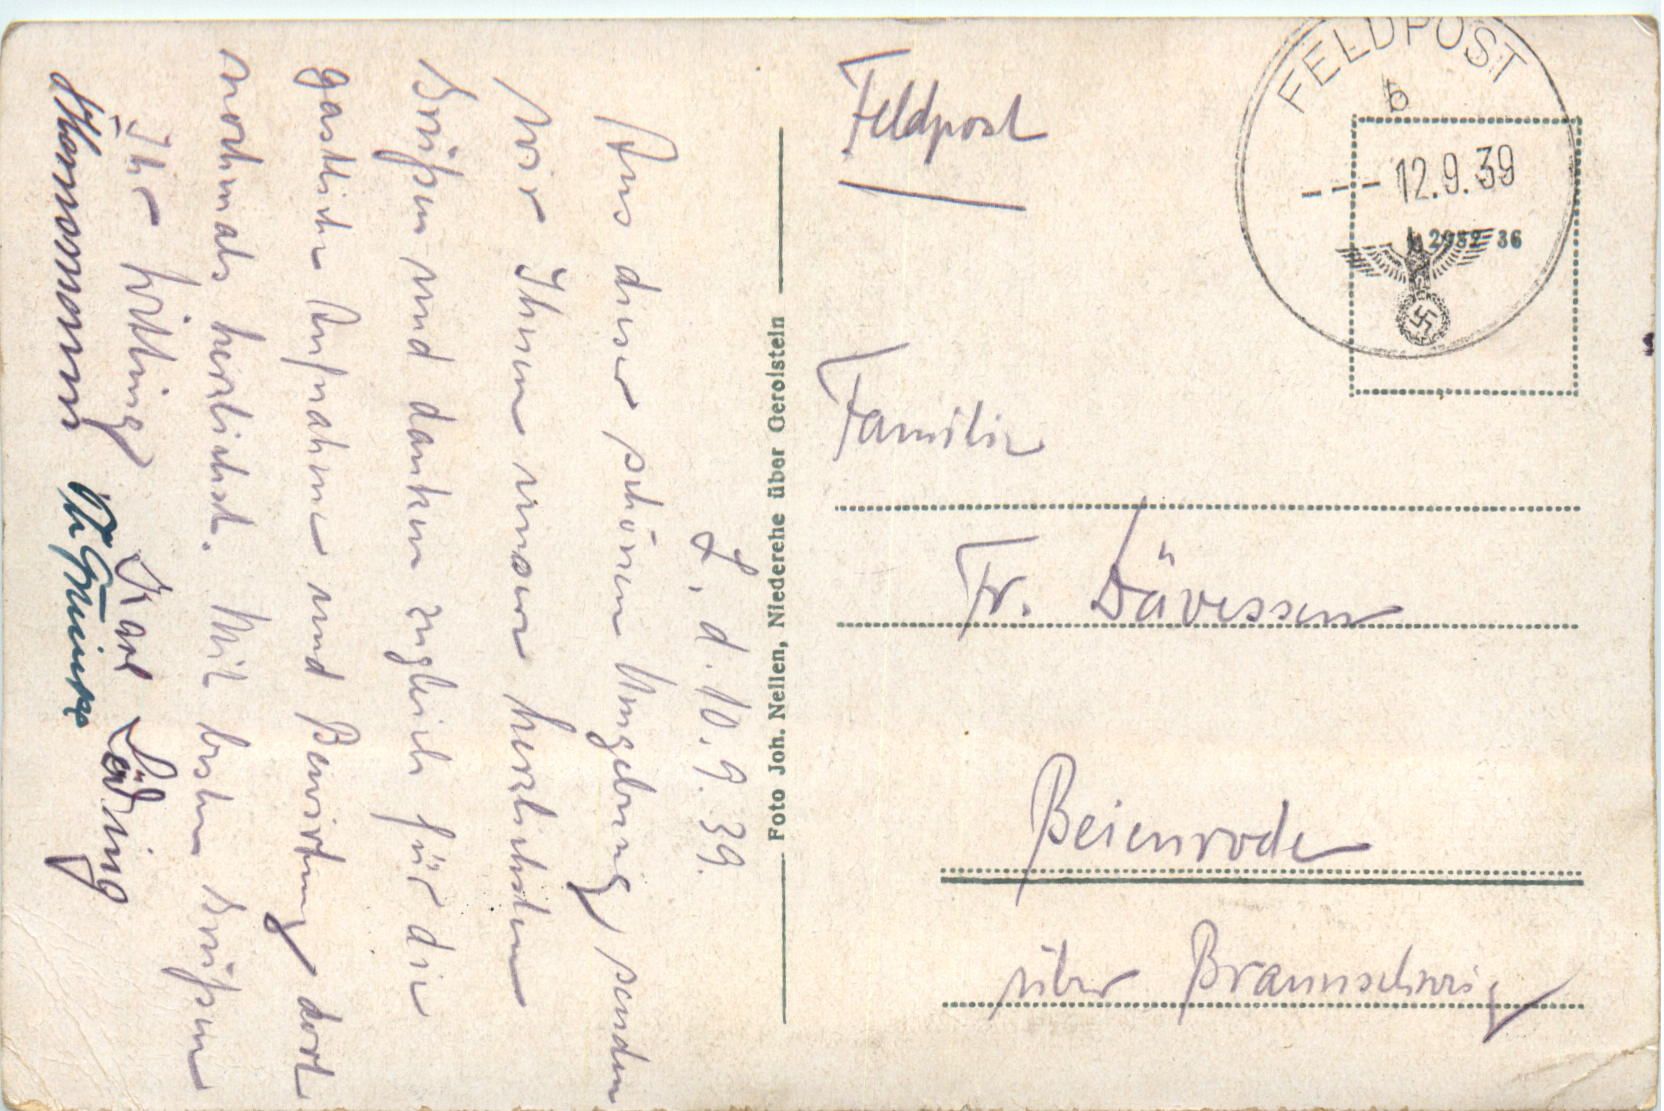 Z., d. 10.9.39.
Aus dieser schönen Umgebung senden
wir Ihnen unsere herzlichsten
Grüßen und danken zugleich für die
gastliche Aufnahme und Bewirtung dort
nochmals herzlichst. Mit besten Grüßen
Ihr
Karl
Foto Joh. Nellen, Niederehe über Gerolstein
Feldpost
FELDPOST
b
---12.9.39
2932 36
Familie
Fr. Dävessen
Beienrode
über Braunschweig